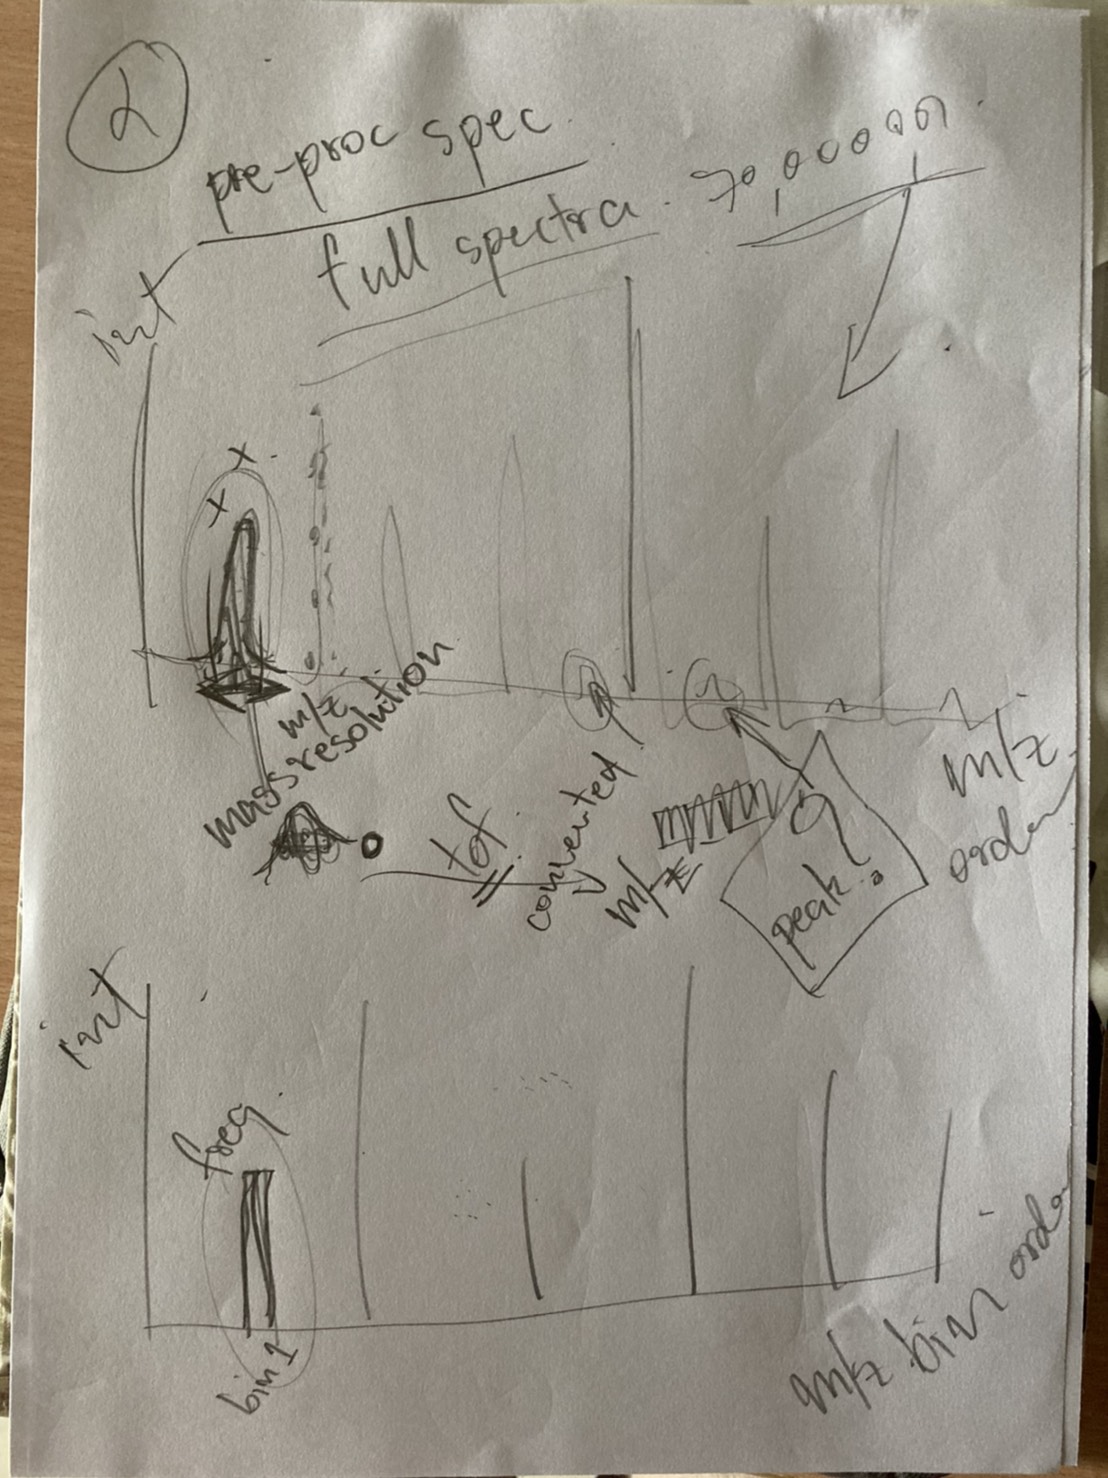 2
pre-proc spec.
full spectra.
int
x
x
m/z
mass resolution
tof
converted
m/z
peak?
m/z
order
int
freq.
bin 1
m/z bin order